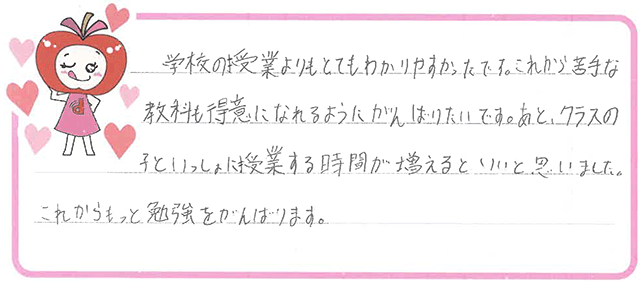 学校の授業よりもとてもわかりやすかったです。これから苦手な
教科も得意になれるようにがんばりたいです。あと、クラスの
子といっしょに授業する時間が増えるといいと思いました。
これからもっと勉強をがんばります。